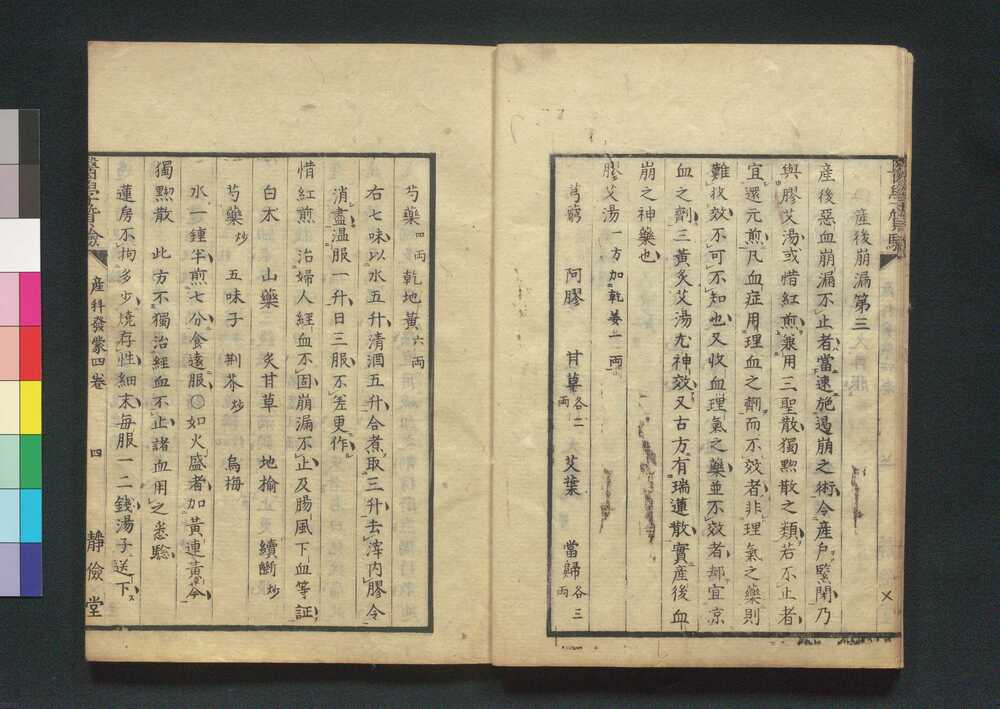 産後崩漏第三
産後惡血崩漏不止者當速施遏崩之術令産戸緊閉乃
與膠艾湯或惜紅煎兼用三聖散獨黙散之類若不止者
宜還元煎凡血症用理血之劑而不效者非理氣之藥則
難收效不可不知也又收血理氣之藥並不效者却宜凉
血之劑三黃炙艾湯尤神效又古方有瑞蓮散實産後血
崩之神藥也
膠艾湯 一方加乾姜一両
芎藭 阿膠 甘草各二両 艾葉 當歸各三両
芍藥四両 乾地黃六両
右七味以水五升清酒五升合煮取三升去滓内膠令
消盡温服一升日三服不差更作
惜紅煎 治婦人經血不固崩漏不止及腸風下血等証
白朮 山藥 炙甘草 地楡 續斷炒
芍藥炒 五味子 荆芥炒 烏梅
水一鍾半煎七分食遠服〇如火盛者加黃連黃芩
獨黙散 此方不獨治經血不止諸血用之悉驗
蓮房不拘多少燒存性細末毎服一二錢湯子送下
産科發蒙四卷 四 靜儉堂